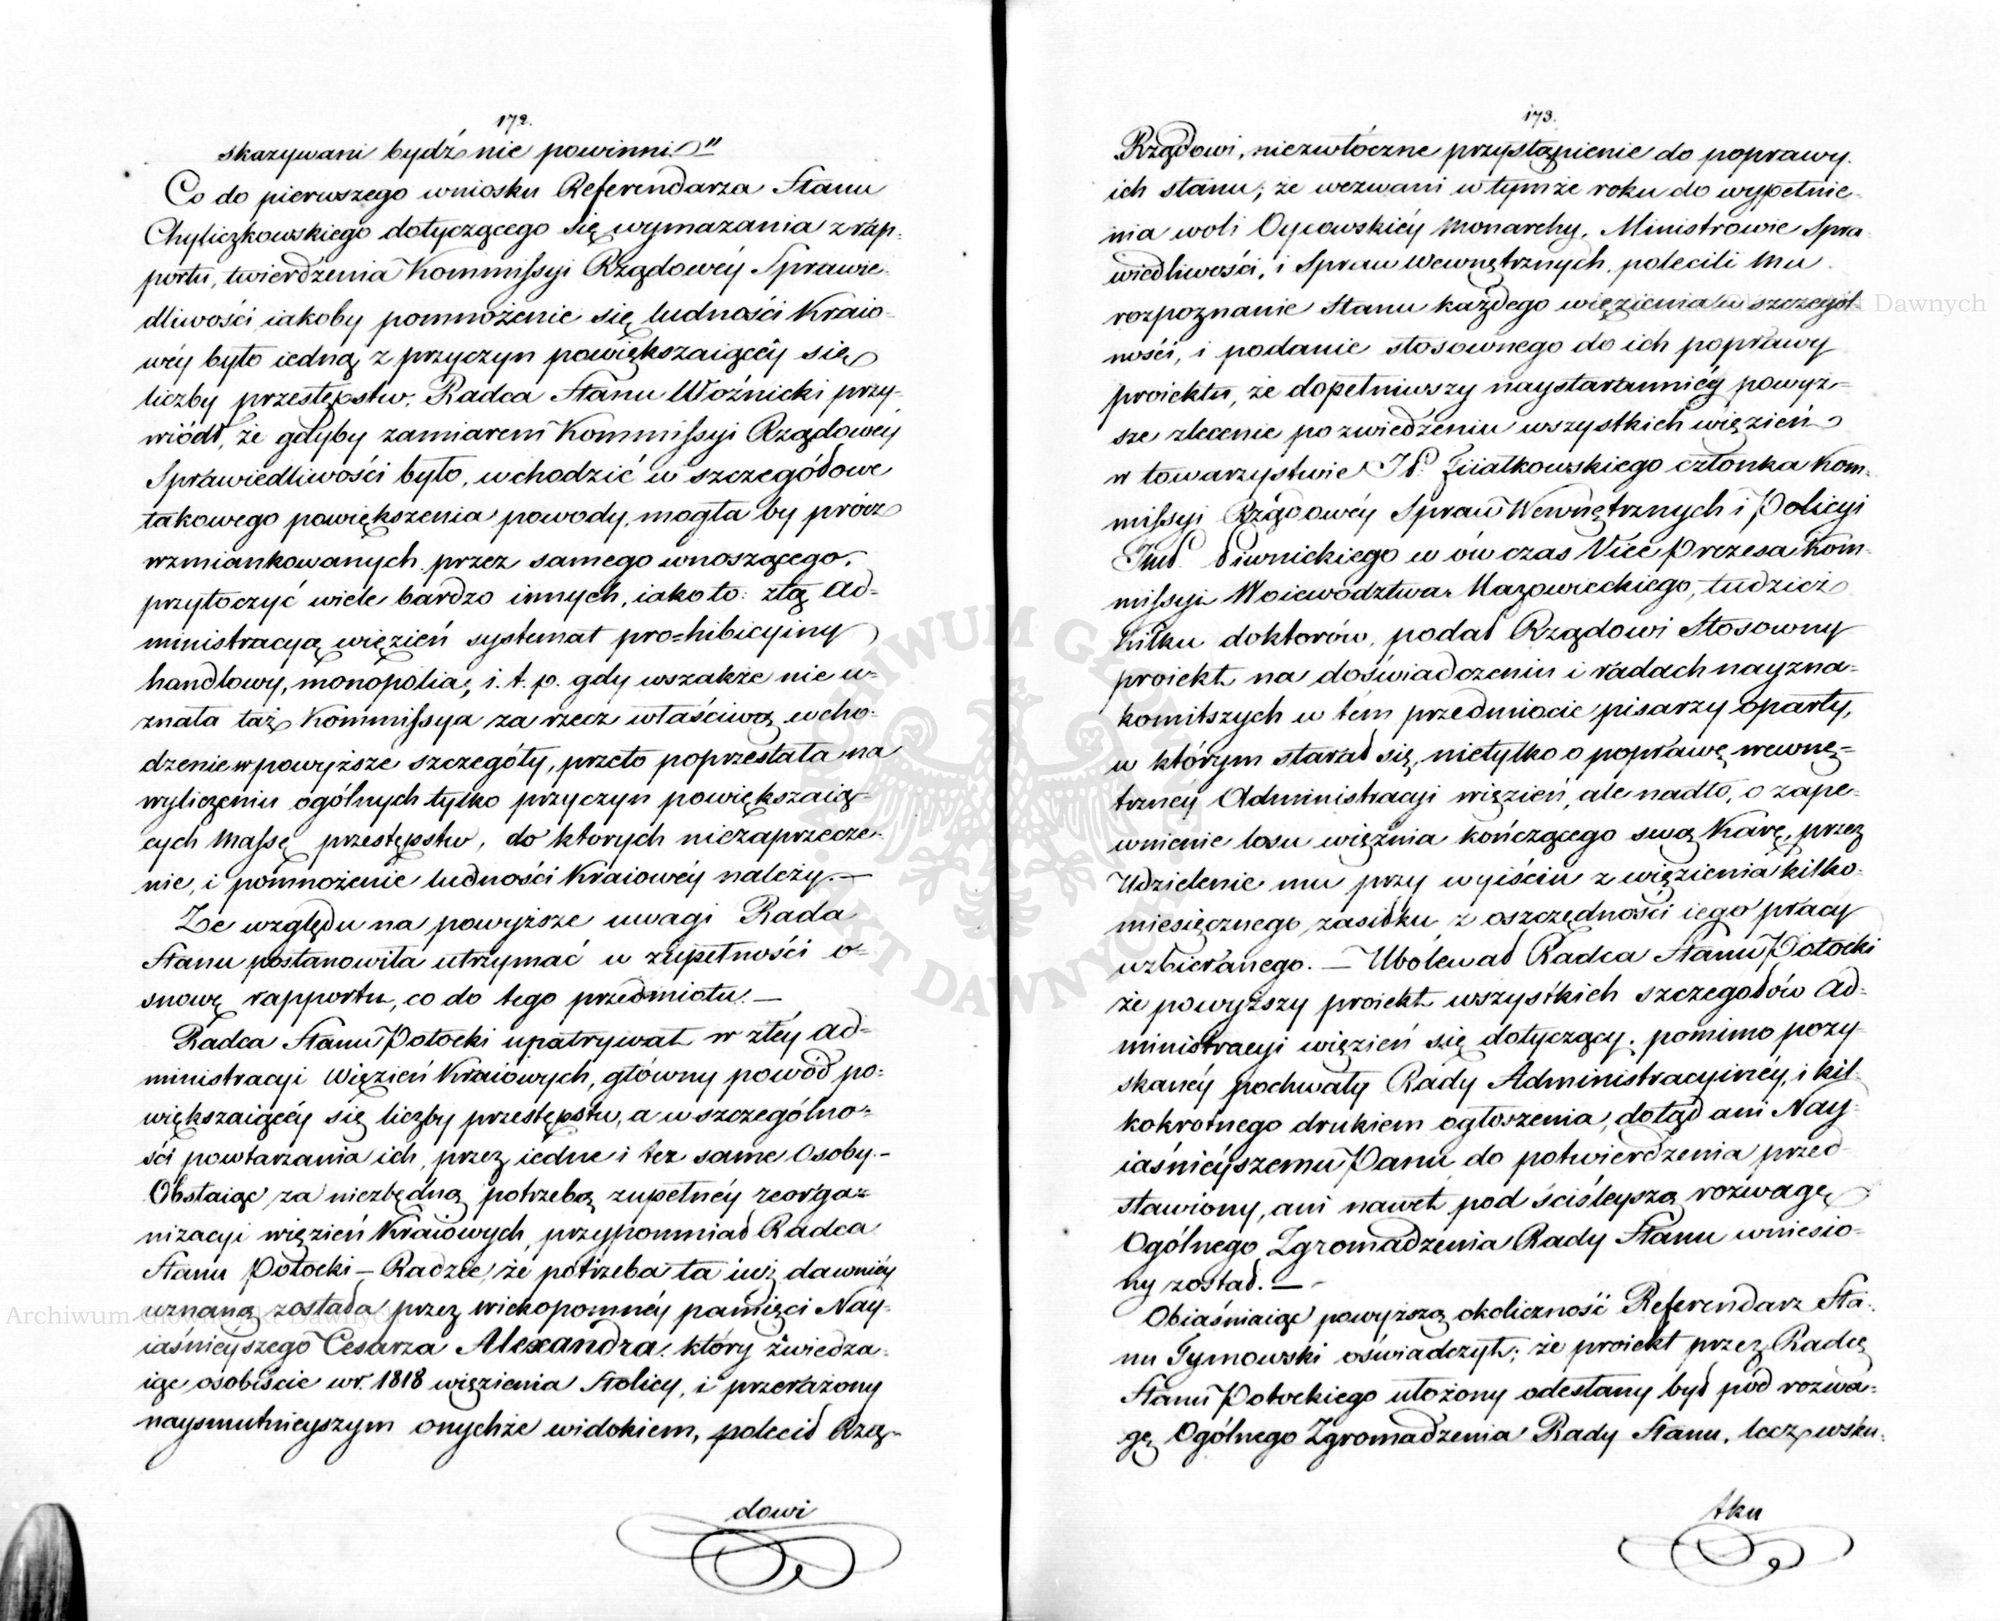 172.
skazywani bydź nie powinni."
Co do pierwszego wniosku Referendarza Stanu
Chyliczkowskiego dotyczącego się wymazania z rap-
portu, twierdzenia Kommissyi Rządowéy Sprawie-
dliwości iakoby pomnożenie się ludności Kraio-
wéy było iedną z przyczyn powiększaiącéy się
liczby przestępstw. Radca Stanu Woźnicki przy-
wiódł, że gdyby zamiarem Kommissyi Rządowéy
Sprawiedliwości było, wchodzić w szczegółowe
takowego powiększenia powody, mogła by prócz
wzmiankowanych przez samego wnoszącego,
przytoczyć wiele bardzo innych, iako to: złą Ad=
ministracyą więzień systemat pro=hibicyiny
handlowy, monopolia, i. t. p. gdy wszakże nie u-
znała taż Kommissya za rzecz właściwą wcho-
dzenie w powyższe szczegóły, przeto poprzestała na
wyliczeniu ogólnych tylko przyczyn powiększaią-
cych Massę przestępstw, do ktorych niezaprzecze-
nie, i pomnożenie ludności Kraiowéy należy. —
Ze względu na powyższe uwagi Rada
Stanu postanowiła utrzymać w zupełności o=
snowę rapportu, co do tego przedmiotu. —
Radca Stanu Potocki upatrywał w złéy Ad=
ministracyi Więzień Kraiowych, główny powód po=
większaiącéy się liczby przestępstw, a w szczególno=
ści powtarzania ich, przez iedne i też same Osoby. –
Obstaiąc za niezbędną potrzebą zupełnéy reorga=
nizacyi więzień Kraiowych, przypomniał Radca
Stanu Potocki — Radzie, że potrzeba ta iuż dawniéy
uznaną została przez wiekopomnéy pamięci Nay-
iaśnieyszego Cesarza Alexandra, który zwiedza-
iąc osobiście w r. 1818 więzienia Stolicy, i przerażony
naysmutnieyszym onychże widokiem, polecił Rzą-
dowi
173.
Rządowi, niezwłóczne przystąpienie do poprawy
ich stanu; że wezwani w tymże roku do wypełnie-
nia woli Oycowskiéy Monarchy, Ministrowie Spra-
wiedliwości, i Spraw Wewnętrznych, polecili Mu
rozpoznanie Stanu każdego więzienia w szczegól-
ności, i podanie stosownego do ich poprawy
proiektu, że dopełniwszy naystaranniéy powyż-
sze zlecenie po zwiedzeniu wszystkich więzień
w towarzystwie Fiiałkowskiego członka Kom-
missyi Rządowéy Spraw Wewnętrznych i Policyi
Piwnickiego w ów czas Vice Prezesa Kom-
missyi Woiewództwa Mazowieckiego, tudzież
kilku doktorów, podał Rządowi Stosowny
proiekt na doświadczeniu i radach nayzna-
komitszych w tém przedmiocie pisarzy oparty,
w którym starał się, nietylko o poprawę wewnę=
trznéy Administracyi więzień, ale nadto, o zape-
wnienie losu więźnia kończącego swą Karę, przez
Udzielenie mu przy wyiściu z więzienia kilko-
miesięcznego zasiłku z oszczędności iego pracy
uzbieranego. — Ubolewał Radca Stanu Potocki
że powyższy proiekt wszystkich szczegółów Ad-
ministracyi więzień się dotyczący, pomimo pozy-
skanéy pochwały Rady Administracyinéy, i kil-
kokrotnego drukiem ogłoszenia, dotąd ani Nay-
iaśniéyszemu Panu do potwierdzenia przed-
stawiony, ani nawet pod ściśleyszą rozwagę
Ogólnego Zgromadzenia Rady Stanu wniesio-
ny został. — -
Obiaśniaiąc powyższą okoliczność Referendarz Sta-
nu Tymowski oświadczył; że proiekt przez Radcę
Stanu Potockiego ułożony odesłany był pod rozwa-
gę Ogólnego Zgromadzenia Rady Stanu, lecz wsku-
tku
Archiwum Główne Akt Dawnych